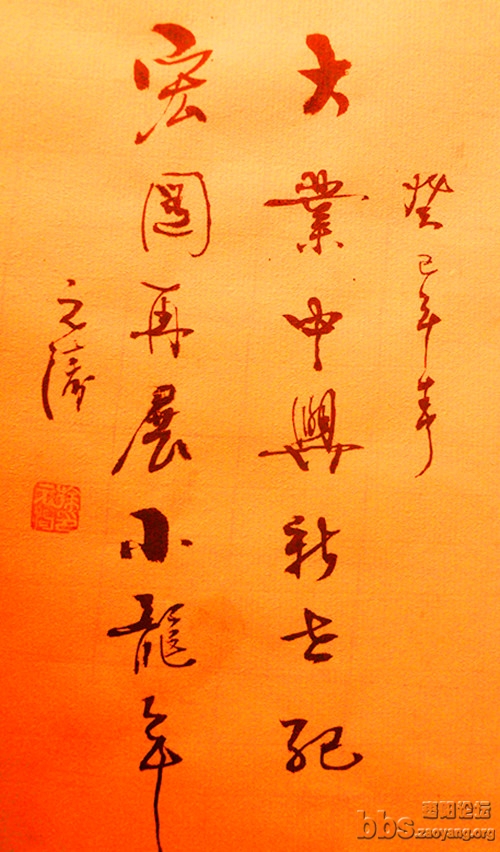 癸巳年春
大業中興新世紀
宏圖再展小龍年
元
bbs.zaoyang.org